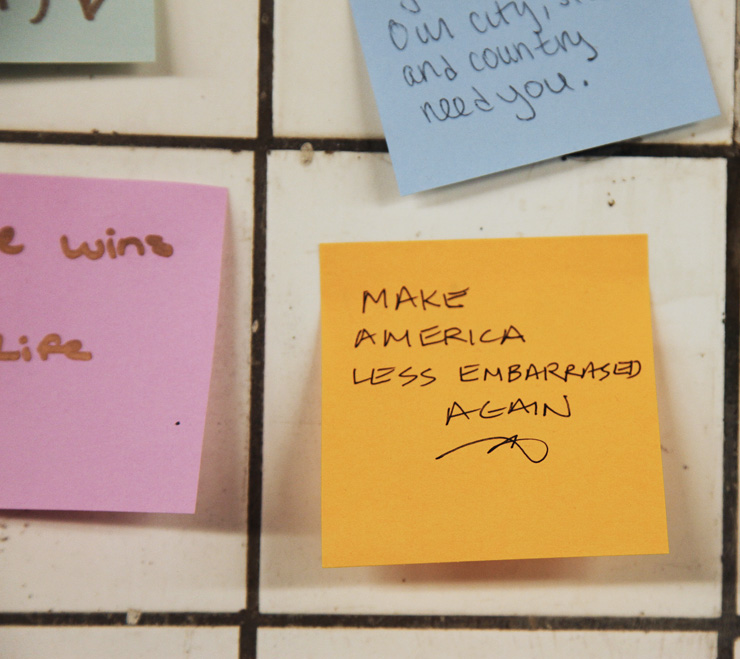 Our city,
and country
need you.
wins
Life
MAKE
AMERICA
LESS EMBARRASED
AGAIN